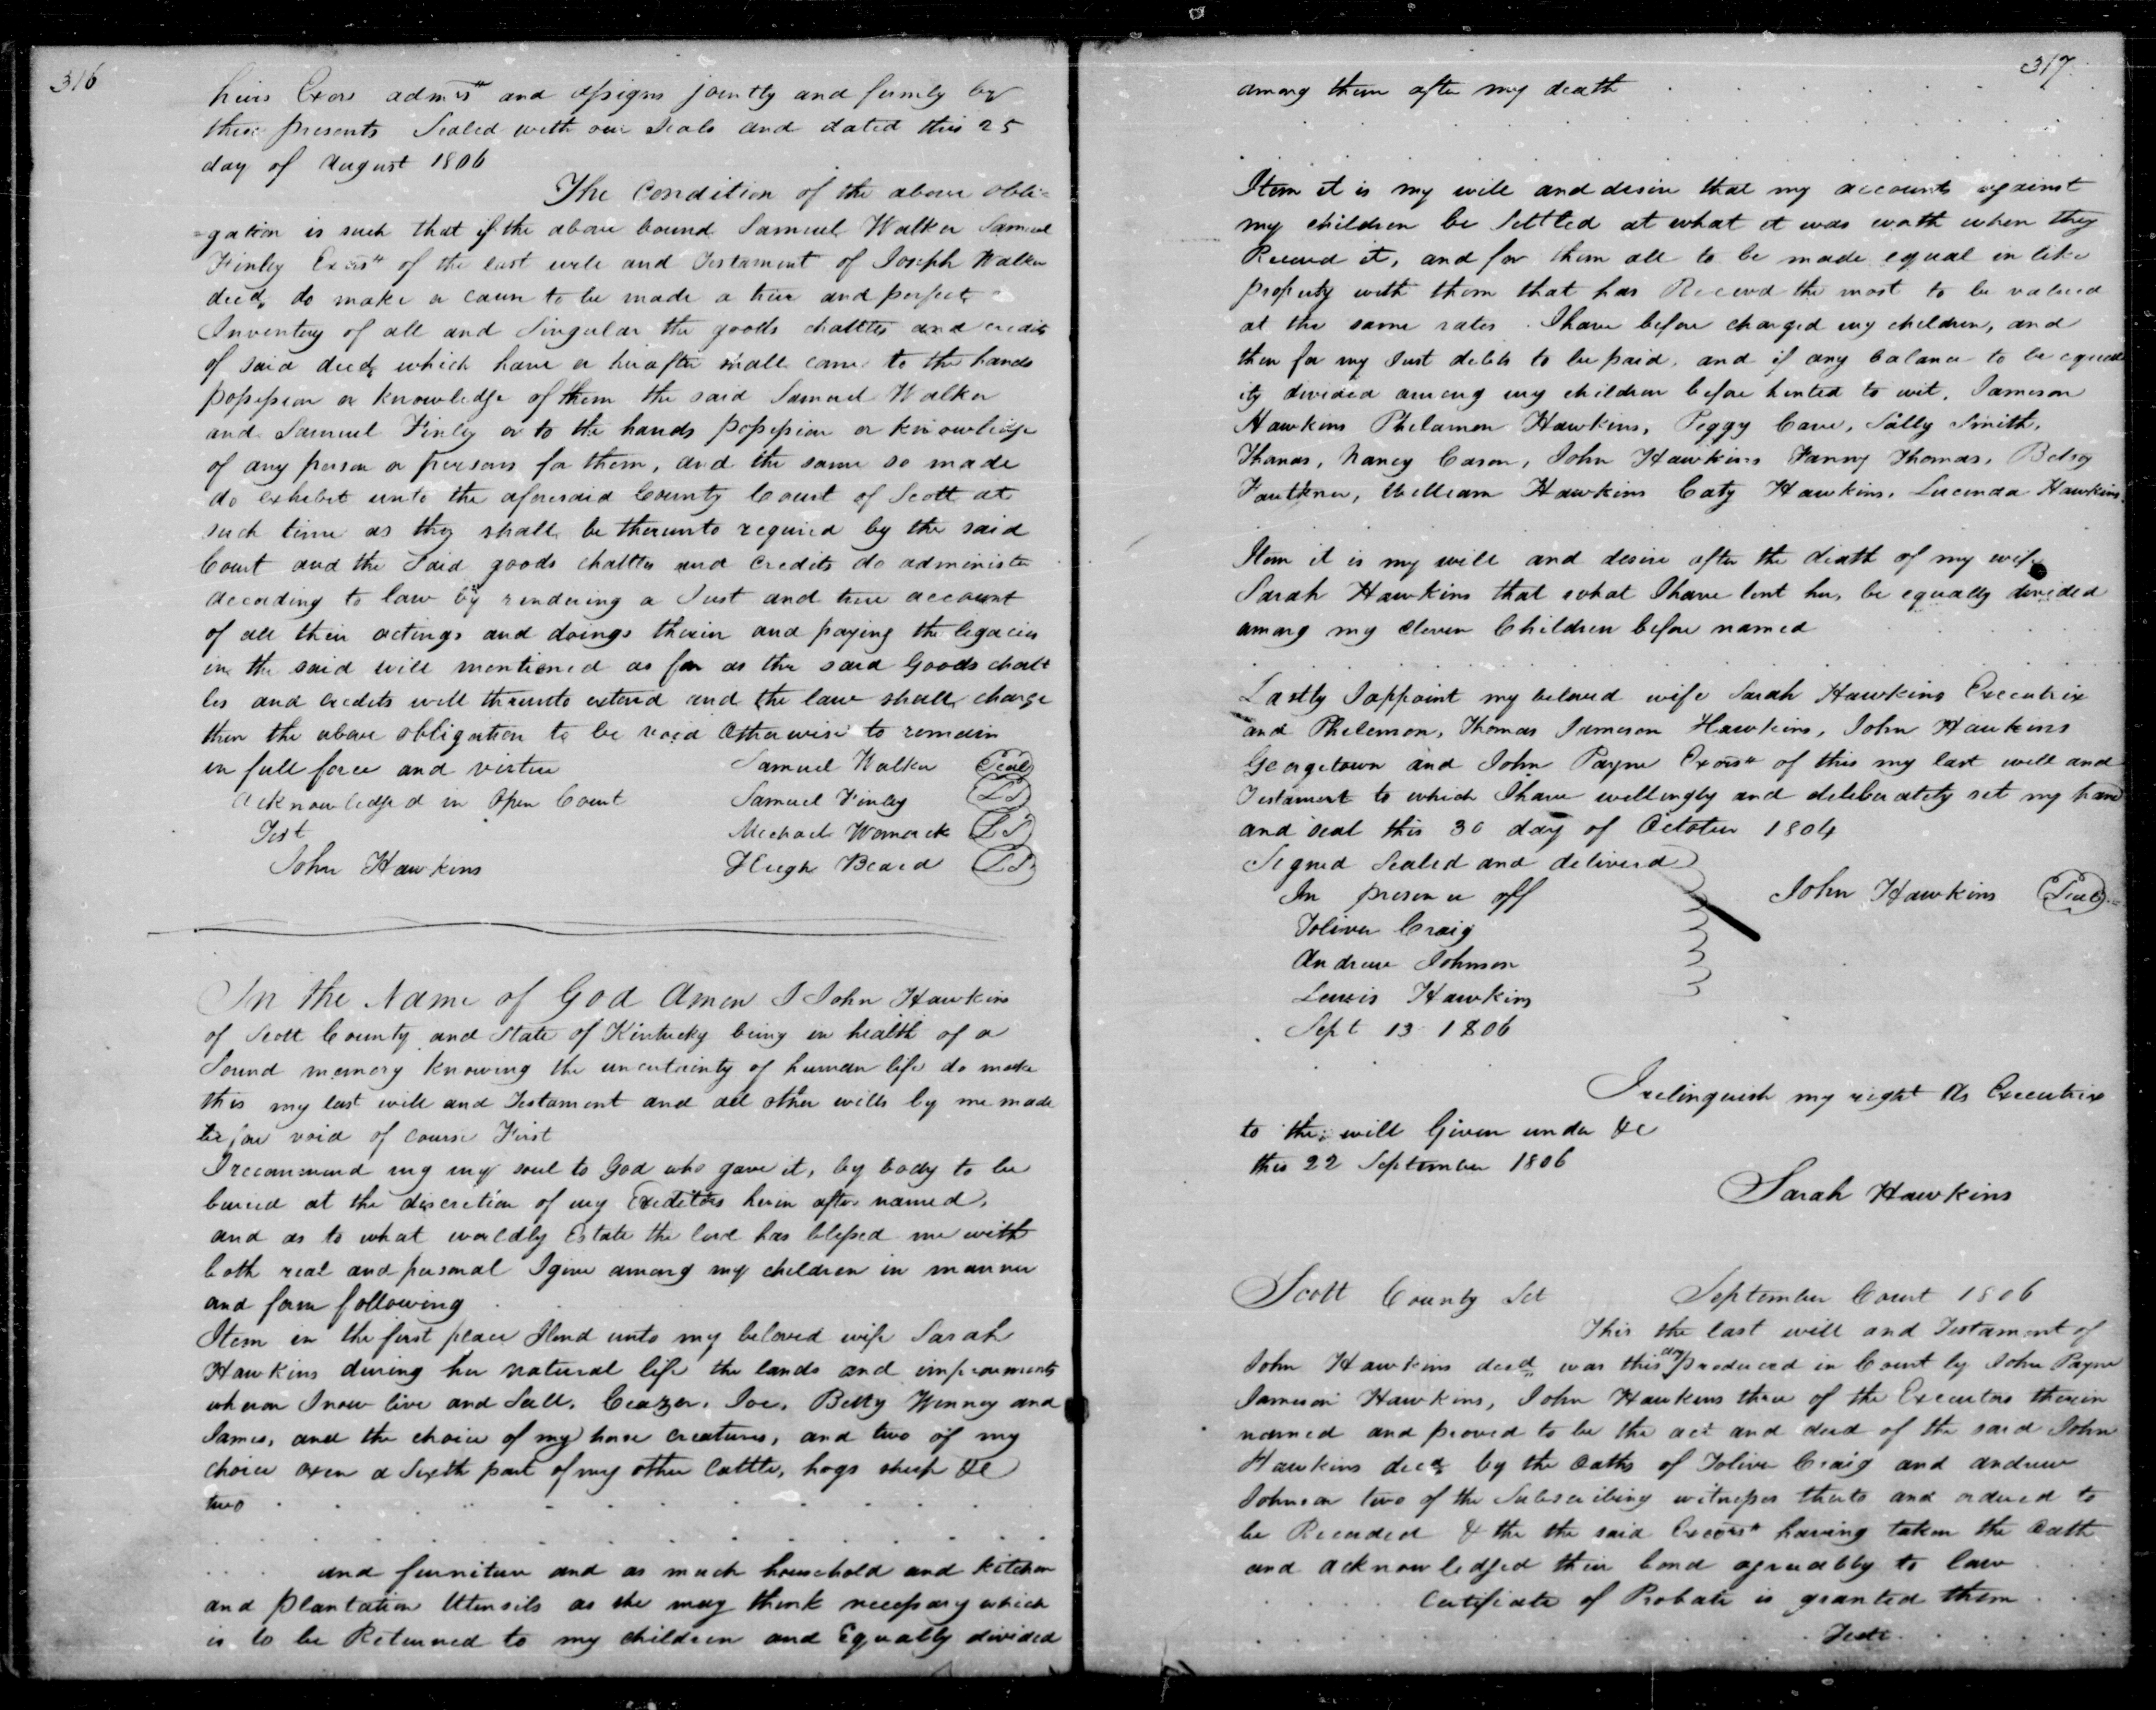 316
heirs Exors admrs and assigns jointly and firmly by
these presents Sealed with our Seals and dated this 25
day of August 1806
The Condition of the above obli=
=gation is such that if the above bound Samuel Walker Samuel
Finley Exors of the last will and Testament of Joseph Walker
decd, do make or caus to be made a true and perfect
Inventory of all and Singular the goods chattles and credits
of said decd, which have or hereafter shall come to the hands
possession or knowledge of them the said Samuel Walker
and Samuel Finley or to the hands possession or knowledge
of any person or persons for them, and the same so made
do exhibit unto the aforesaid County Court of Scott at
such time as they shall be thereunto required by the said
Court and the Said goods chattles and credits do administer
according to law by rendering a Just and true account
of all their actings and doings therein and paying the legacies
in the said will mentioned as far as the said Goods chatt
les and credits will thereunto extend and the law shall charge
then the above obligation to be void Otherwise to remain
in full force and virtue Samuel Walker Seal
Acknowledged in Open Court Samuel Finley LS
Test Michael Womack LS
John Hawkins Hugh Beard LS
In the Name of God Amen I John Hawkins
of Scott County and State of Kintucky being in health of a
Sound memory knowing the uncertainty of human life do make
this my last will and Testament and all other wills by me made
before void of course First
I recommend my my soul to God who gave it, by body to be
buried at the discretion of my Creditors herein after named,
and as to what worldly Estate the lord has blessed me with
both real and personal I give among my children in manner
and form following
Item in the first place I lend unto my beloved wife Sarah
Hawkins during her natural life the lands and improvments
wheron I now live and Sall, Ceazer, Joe, Betty Winney and
James, and the choice of my horse creatures, and two of my
choice oxen a Sixth part of my other Cattle, hogs sheep &c
two
and furniture and as much household and kitchen
and plantation Utensils as she may think necessary which
is to be Returned to my children and Equally divided
317
among them after my death
Item it is my will and desire that my accounts against
my children be Settled at what it was worth when they
Received it, and for them all to be made equal in like
property with them that has Received the most to be valued
at the same rates I have before charged my children, and
then for my Just debts to be paid, and if any balance to be equal
ly divided among my children before hinted to wit, Jameson
Hawkins Philamon Hawkins, Peggy Cave, Sally Smith,
Thomas, Nancy Cason, John Hawkins Fanny Thomas, Betsey
Faulkner, William Hawkins Caty Hawkins, Lucinda Hawkins,
Item it is my will and desire after the death of my wife
Sarah Hawkins that what I have lent her, be equally divided
among my eleven Children before named
Lastly I appoint my beloved wife Sarah Hawkins Executrix
and Philemon, Thomas Jameson Hawkins, John Hawkins
Georgetown and John Payne Exors of this my last will and
Testament to which I have willingly and deliberately set my hand
and seal this 30 day of October 1804
Signed Sealed and deliverd
In presence off John Hawkins Seal
Toliver Craig
Andrew Johnson
Lewis Hawkins
Sept 13 1806
I relinquish my right As Executrix
to the will Given under &c
this 22 September 1806
Sarah Hawkins
Scott County Sct September Court 1806
This the last will and Testament of
John Hawkins decd was this day produced in Court by John Payne
Jameson Hawkins, John Hawkins three of the Executors therein
named and proved to be the act and deed of the said John
Hawkins decd by the Oaths of Toliver Craig and andrew
Johnson two of the Subscribing witnesses thereto and ordered to
be Recorded & the the said Exors having taken the Oath
and acknowledged their bond agreeably to law
Certificate of Probate is granted them
Teste